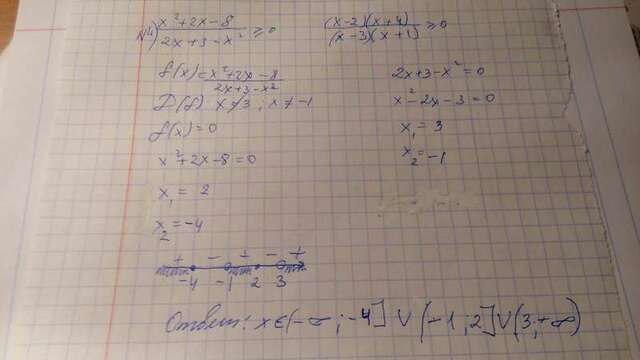 №4) (x²+2x-8)/(2x+3-x²) ≥ 0
((x-2)(x+4))/((x-3)(x+1)) ≥ 0
f(x) = (x²+2x-8)/(2x+3-x²)
D(f) x ≠ 3; x ≠ -1
f(x) = 0
x²+2x-8=0
x₁ = 2
x₂ = -4
2x+3-x²=0
x²-2x-3=0
x₁ = 3
x₂ = -1
+ - + - +
-4 -1 2 3
Ответ: x∈(-∞; -4] ∨ (-1; 2] ∨ (3; +∞)